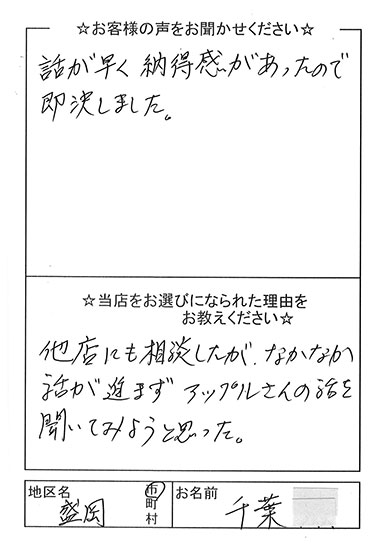 ☆お客様の声をお聞かせください☆
話が早く納得感があったので
即決しました。
☆当店をお選びになられた理由を
お教えください☆
他店にも相談したが、なかなか
話が進まず アップルさんの話を
聞いてみようと思った。
地区名 盛岡 市町村 お名前 千葉